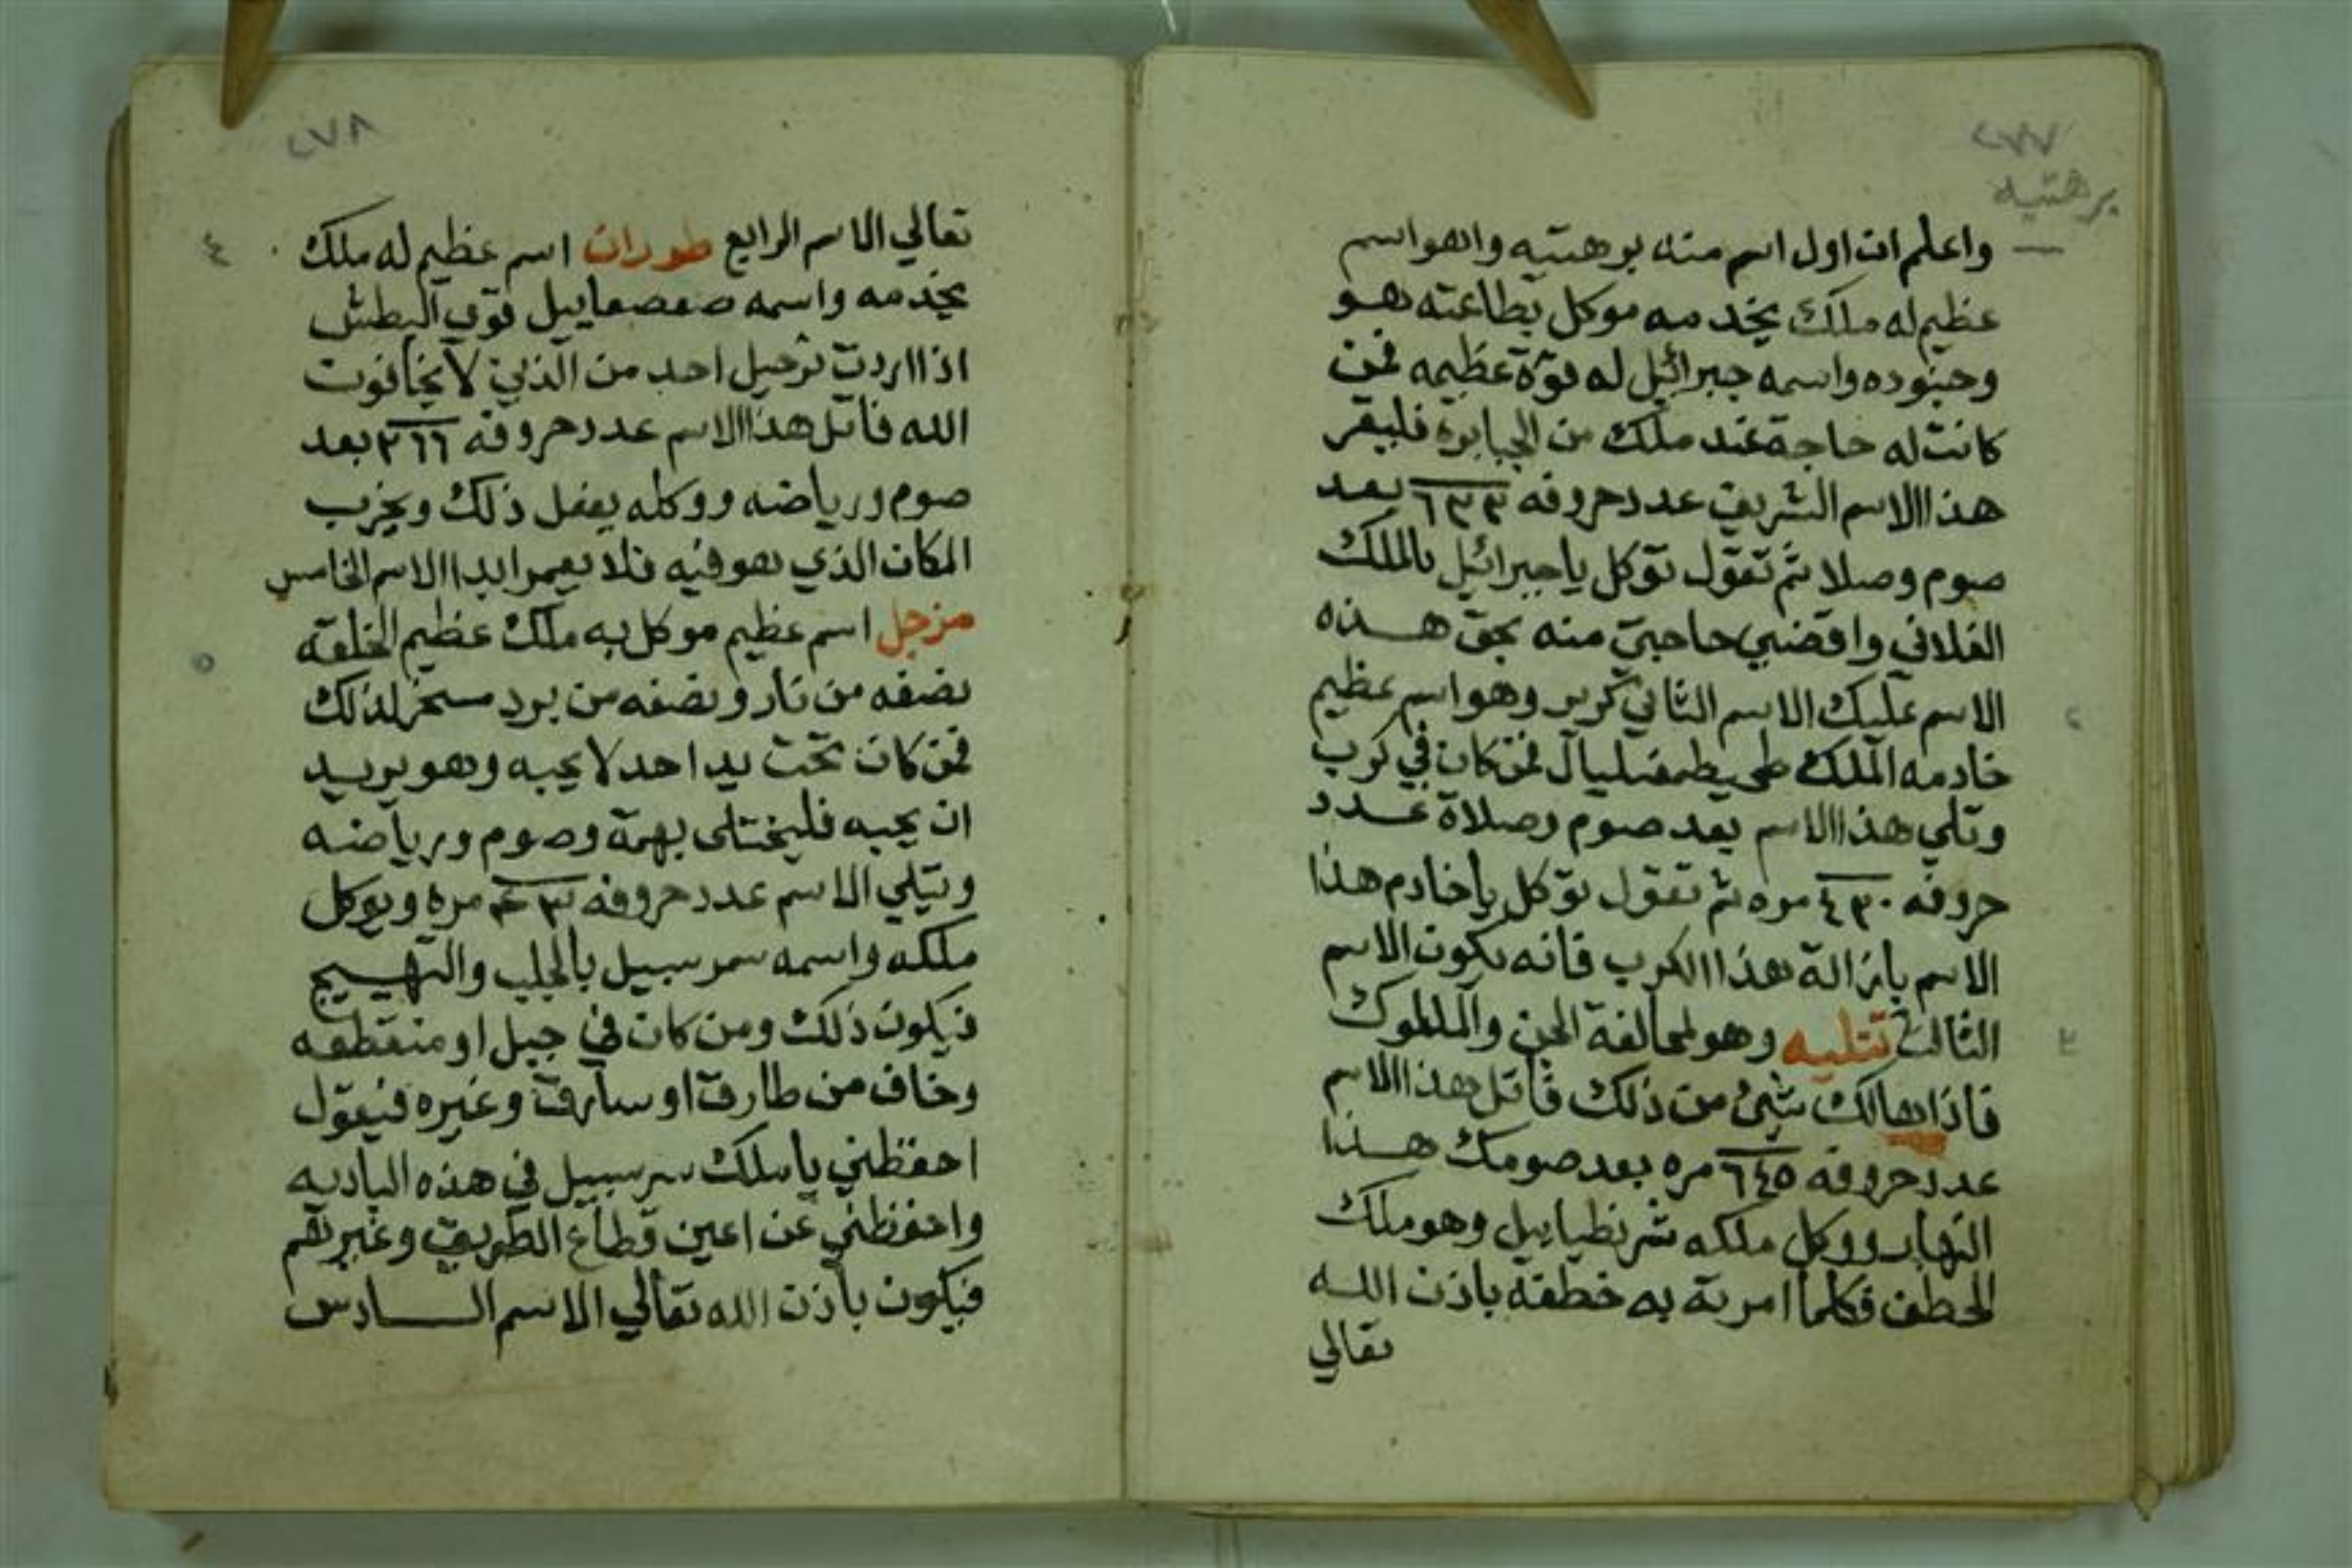 ٢٧٧
برهتيه
واعلم ان اول اسم منه برهتيه وانهو اسم
عظيم له ملك يخدمه موكل بطاعته هو
وجنوده واسمه جبرائيل له قوة عظيمه فمن
كانت له حاجة عند ملك من الجبابره فليقر
هذا الاسم الشريف عدد حروفه ٦٣٣ بعد
صوم وصلا ثم تقول توكل يا جبرائيل بالملك
الفلاني واقضي حاجتي منه بحق هذه
الاسم عليك الاسم الثاني كرير وهو اسم عظيم
خادمه الملك فمن كان في كرب
وتلي هذا الاسم بعد صوم وصلاة عدد
حروفه ٤٣٠ مره ثم تقول توكل يا خادم هذا
الاسم بازالة هذا الكرب فانه يكون الاسم
الثالث تتليه وهو لمحالفة الجن والملوك
فاذا بهالك شئ من ذلك فاتل هذا الاسم
عدد حروفه ٦٤٥ مره بعد صومك هذا
النهار ووكل ملكه شرنطياييل وهو ملك
الخطف فكلما امرته به خطفه باذن الله
تعالي
٢٧٨
تعالي الاسم الرابع طوران اسم عظيم له ملك
٤
يخدمه واسمه صفصفاييل قوي البطش
اذا اردت ترحيل احد من الذين لا يخافوت
الله فاتل هذا الاسم عدد حروفه ٢٦٦ بعد
صوم ورياضه ووكله يفعل ذلك ويخرب
المكان الذي هو فيه فلا يعمر ابدا الاسم الخامس
مزجل اسم عظيم موكل به ملك عظيم الخلقه
٥
نصفه من نار ونصفه من برد مسخر لذلك
فمن كان تحت يد احد لا يحبه وهو يريد
ان يحبه فليختلى بهمة وصوم ورياضه
ويتلي الاسم عدد حروفه مره ويوكل
ملكه واسمه سمرسبيل بالجلب والتهييج
فيكون ذلك ومن كان في جبل او منقطعه
وخاف من طارق او سارق وغيره فيقول
احفظني يا ملك سرسبيل في هذه الباديه
واحفظني عن اعين قطاع الطريق وغيرهم
فيكون باذن الله تعالي الاسم السادس